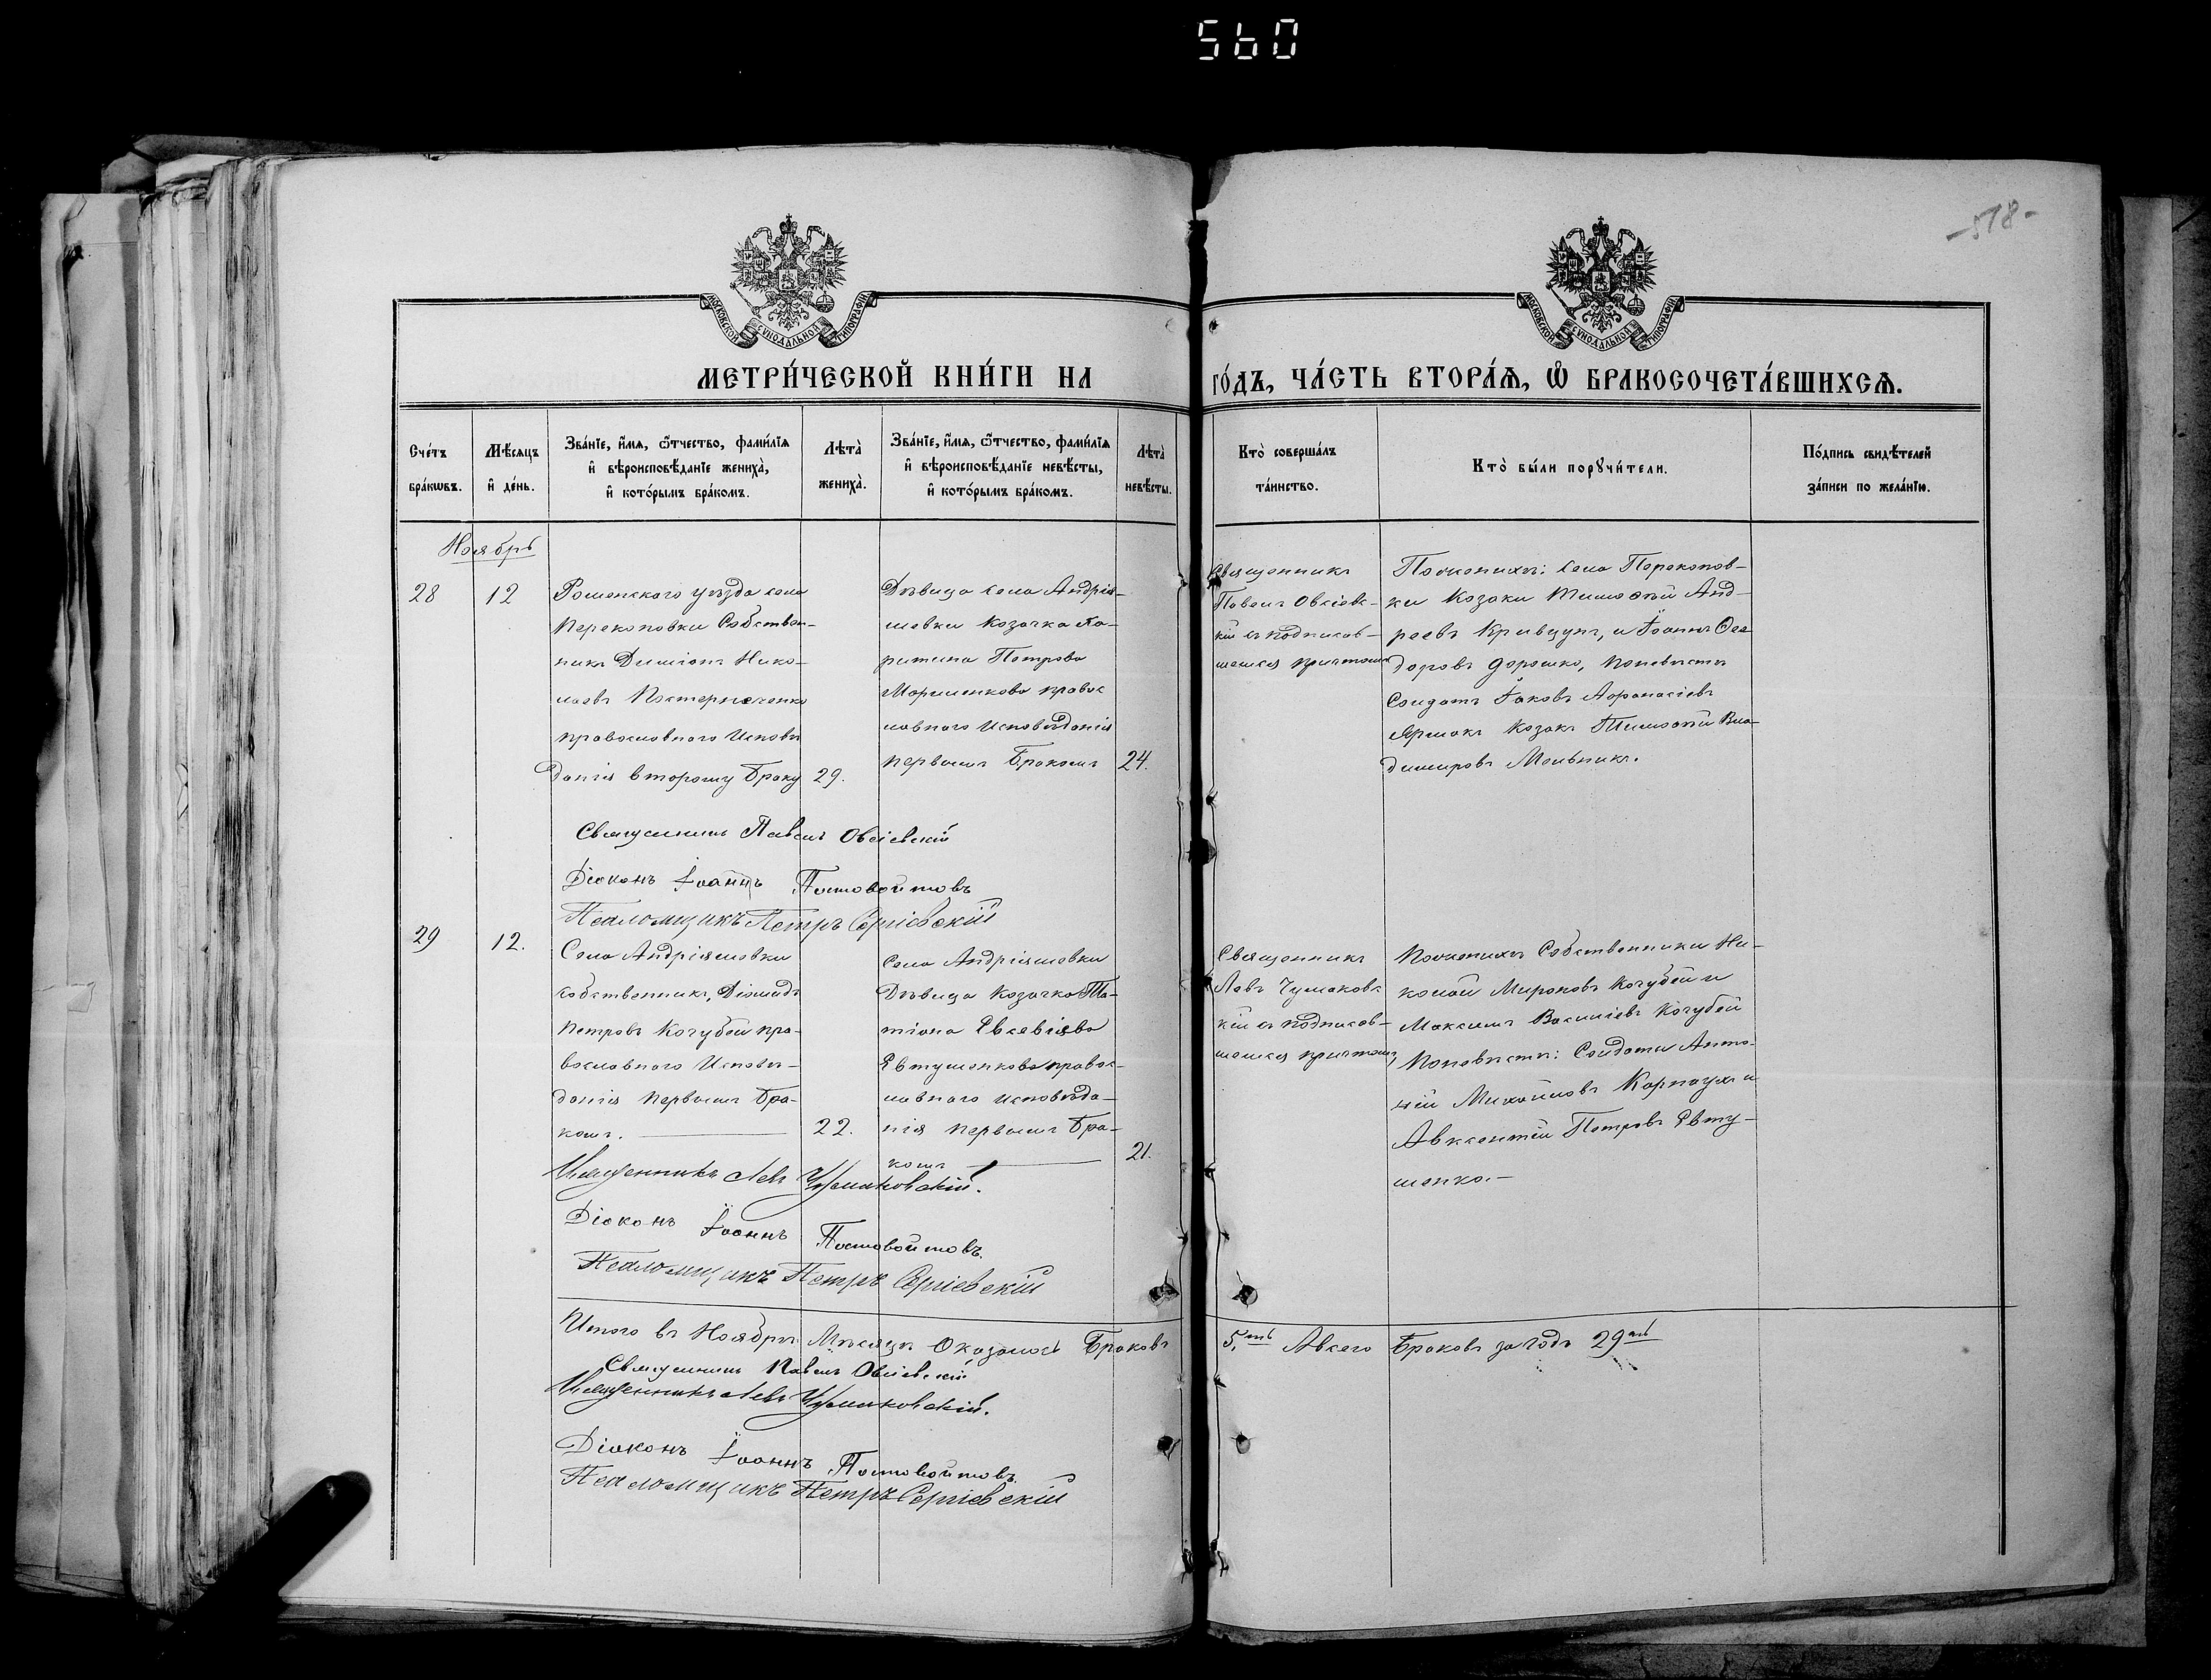 560
-518-
МОСКОВСКОЙ СѴНОДАЛЬНОЙ ТИПОГРАФІИ
МОСКОВСКОЙ СѴНОДАЛЬНОЙ ТИПОГРАФІИ
МЕТРИ́ЧЕСКОЙ КНИ́ГИ НА ГО́ДЪ, ЧА́СТЬ ВТОРА́Я, Ѡ БРАКОСОЧЕТА́ВШИХСЯ.
Сче́тъ
бра́кѡвъ.
Мѣ́сяцъ
и҆ де́нь.
Зва́нїе, и҆́мя, ѻ҆́тчество, фами́лїя
и҆ вѣроисповѣ́данїе жениха̀,
и҆ кото́рымъ бра́комъ.
Лѣта̀
жениха̀.
Зва́нїе, и҆́мя, ѻ҆́тчество, фами́лїя
и҆ вѣроисповѣ́данїе невѣ́сты,
и҆ кото́рымъ бра́комъ.
Лѣта̀
невѣ́сты.
Кто̀ соверша́лъ
та́инство.
Кто̀ бы́ли порꙋчи́тели.
По́дпись свидѣ́телей
за́писи по жела́нїю.
Ноябрь
28
12
Роменского уѣзда села
Перекоповки Собствен-
никъ Диміонъ Нико-
лаевъ Костерниченко
православного Исповѣ
данія второму Браку
29.
Дѣвица села Андрія-
шевки Козачка Па-
Петрова
Мариненкова правос
лавного Исповѣданія
первымъ Бракомъ
24.
Священникъ
Павелъ Овсіевс-
кій съ подписав-
шемся причтомъ
Пожениху: села Перекопов-
ки Козаки Тимофей Анд-
реевъ Кривцунъ, и Іоаннъ Фео
доровъ Дорошко, поневѣсти
Солдатъ Іаковъ Афанасіевъ
Ярмакъ Козакъ Тимофей Вла-
димировъ Мельникъ.
Священникъ Павелъ Овсіевскій
Діаконъ Іоаннъ Постовойтовъ
Псаломщикъ Петръ Сергіевскій
29
12.
Села Андріяшовки
собственникъ, Діомидъ
Петровъ Кочубей пра-
вославного Исповѣ-
данія первымъ Бра-
комъ.
22.
Села Андріяшовки
Дѣвица Козачка Та-
тіана Евсевіева
Евтушенкова правос-
лавного исповѣда-
нія первымъ Бра-
комъ
21.
Священникъ
Левъ Чумаковс
кій съ подписав-
шемся причтомъ,
Пожениху Собственники Ни-
колай Мироновъ Кочубей и
Максимъ Василіевъ Кочубей
Поневѣсти: Солдаты Анто-
ній Михайловъ Карпаухъ и
Авксентій Петровъ Евту-
шенко.-
Священникъ Левъ Чумаковскій.
Діаконъ Іоаннъ Постовойтовъ.
Псаломщикъ Петръ Сергіевскій
Итого въ Ноябрѣ Мѣсяцѣ Оказалось Браковъ 5.ть Авсего Браковъ за годъ 29ть
Священникъ Павелъ Овсіевскій
Священникъ Левъ Чумаковскій.
Діаконъ Іоаннъ Постовойтовъ.
Псаломщикъ Петръ Сергіевскій